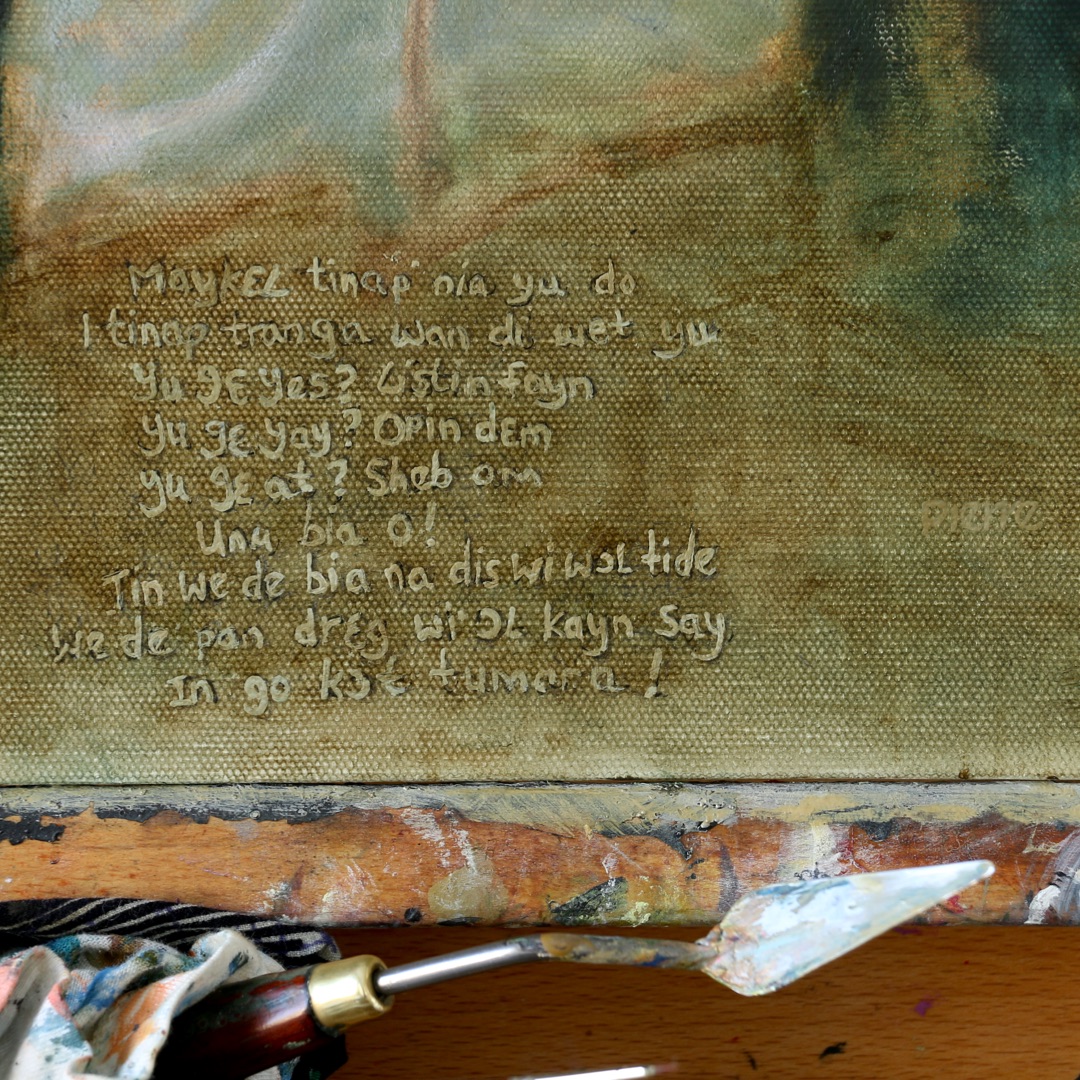 Maykɛl tinap oia yu do
I tinap tranga wan di wet yu
Yu gɛ yes? Listin fayn
Yu gɛ yay? Opin dɛm
yu gɛ at? Sheb am
Unu bia o!
Tin we de bia na dis wi wɔl tide
We de pan drɛg wi ɔl kayn say
In go kɔt tumara!
Pierre